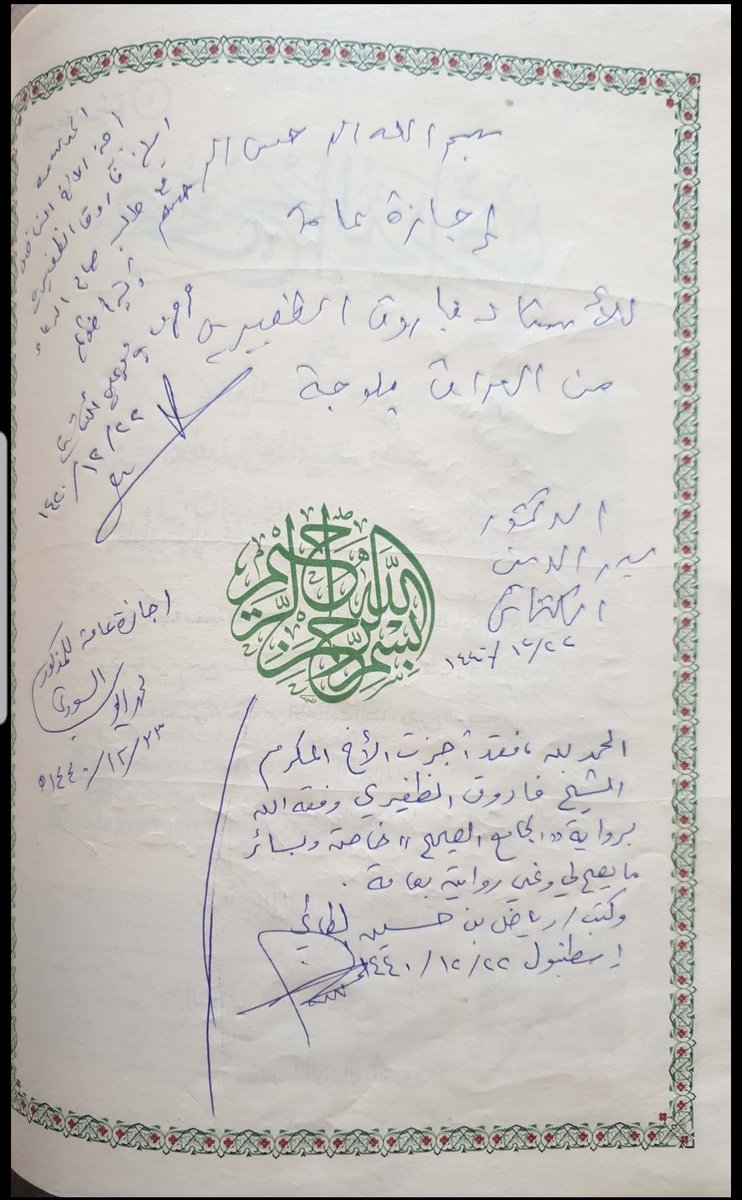 بسم الله الرحمن الرحيم
إجازة عامة
للأستاذ فاروق الظفيري
من العراق فلوجة
الدكتور
بدر الدين
الكتاني
١٤٤٠/١٢/٢٢
الحمد لله
أجزت الأخ
الشيخ فاروق الظفيري
طالب صالح الدعاء
١٤٤٠/١٢/٢٢
بسم الله الرحمن الرحيم
اجازة عامة للمذكور
١٤٤٠/١٢/٢٣ه
الحمد لله، فقد أجزت الأخ المكرم
الشيخ فاروق الظفيري وفقه الله
برواية «الجامع الصحيح» خاصة وبسائر
ما يصح لي وعني روايته بعامة.
وكتب/رياض بن حسين الطائي
إسطنبول ١٤٤٠/١٢/٢٢